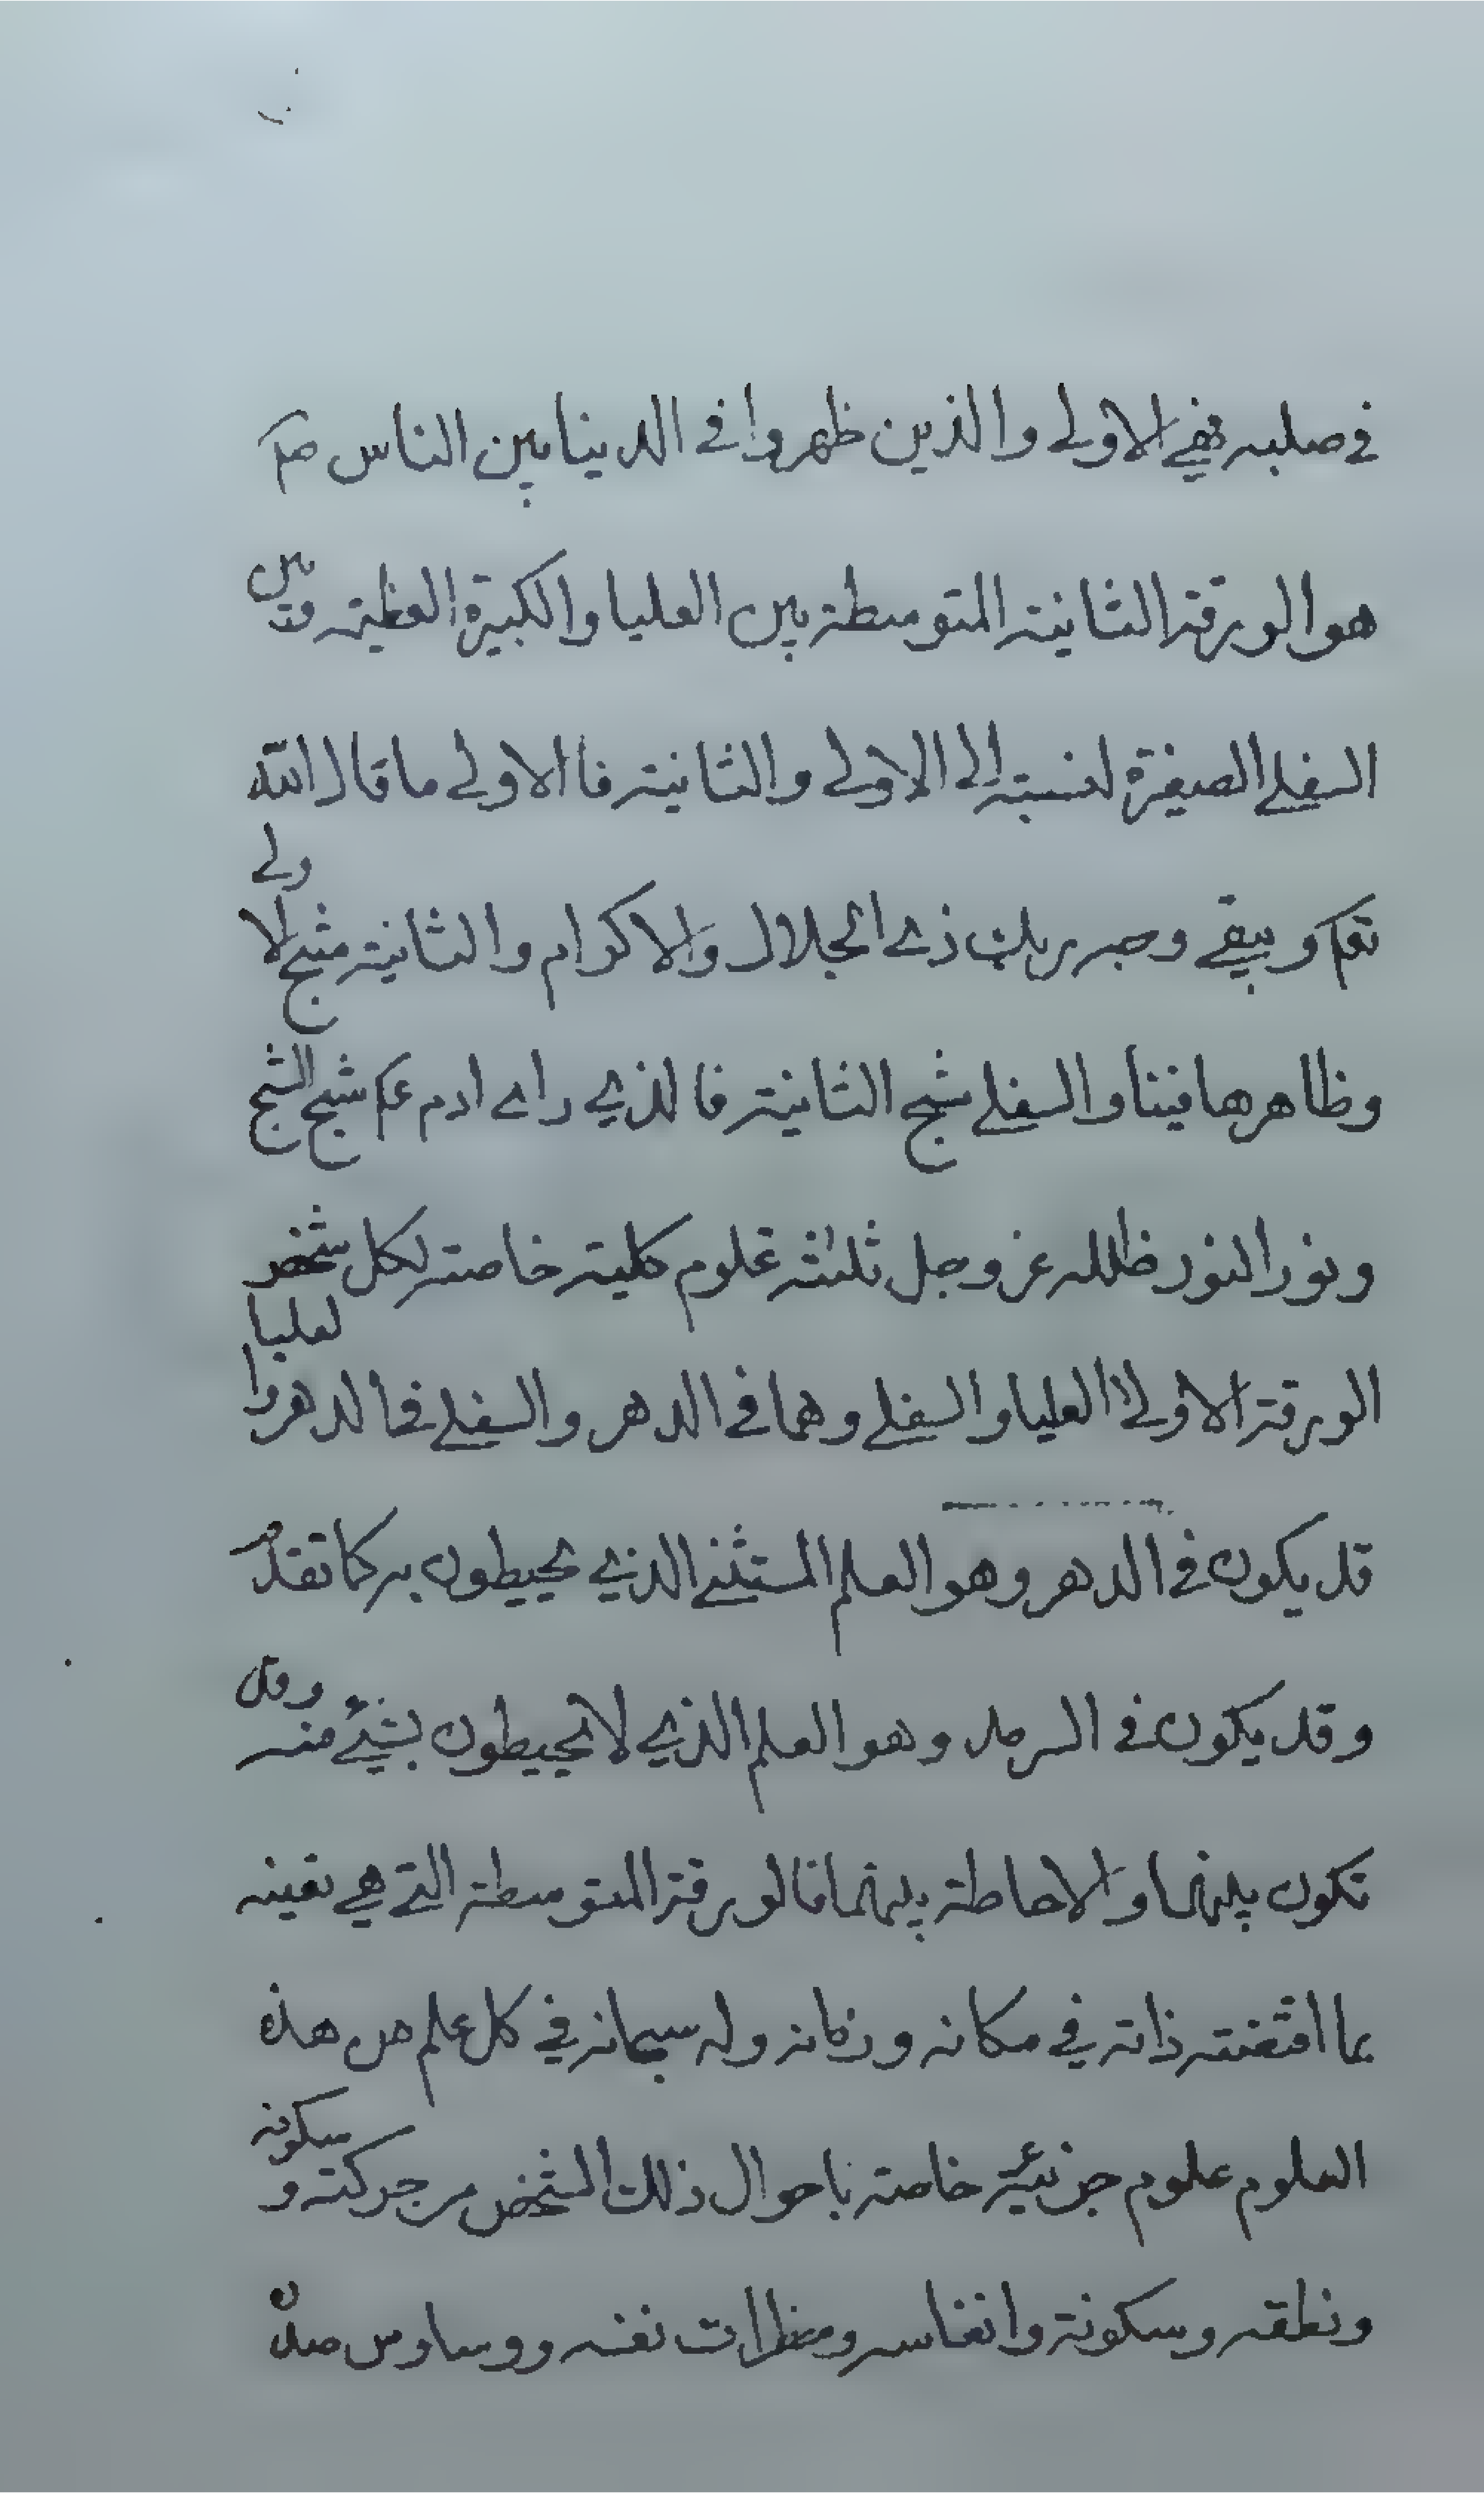 في صلبه فهي الاولى والذين ظهروا في الدنيا بين الناس صم
هو الورقة الثانية المتوسطة بين العليا والكبيرة العظيمة وبين
السفلى الصغيرة لنسبته الى الاولى والثانية فاالاولى ما قال الله
تعم ويبقى وجه ربك ذي الجلال والاكرام والثانية شبح الاولى
وظاهرها فينا والسفلى شبح الثانية فالذي راى ادم عم شبح الشبح
ونور النور ظلله عز وجل ثلثة علوم كلية خاصة لكل شخص
الورقة الاولى العليا والسفلى وهما في الدهر والسفلى فالدهر والعليا
قد يكون في الدهر وهو العلم المستثنى الذي يحيطون به كما تقدم
وقد يكون في السرمد وهو العلم الذي لا يحيطون بشيء منه وقد
تكون بينهما والاحاطة بينهما فالورقة المتوسطة التي هي تعينه
بما اقتضته ذاته في مكانه وزمانه وله سبحانه في كل علم من هذه
العلوم علوم جزئية خاصة باحوال ذلك الشخص من حركته و سكونه
ونطقه وسكوته وانفاسه وخطرات نفسه ووساوس صدره